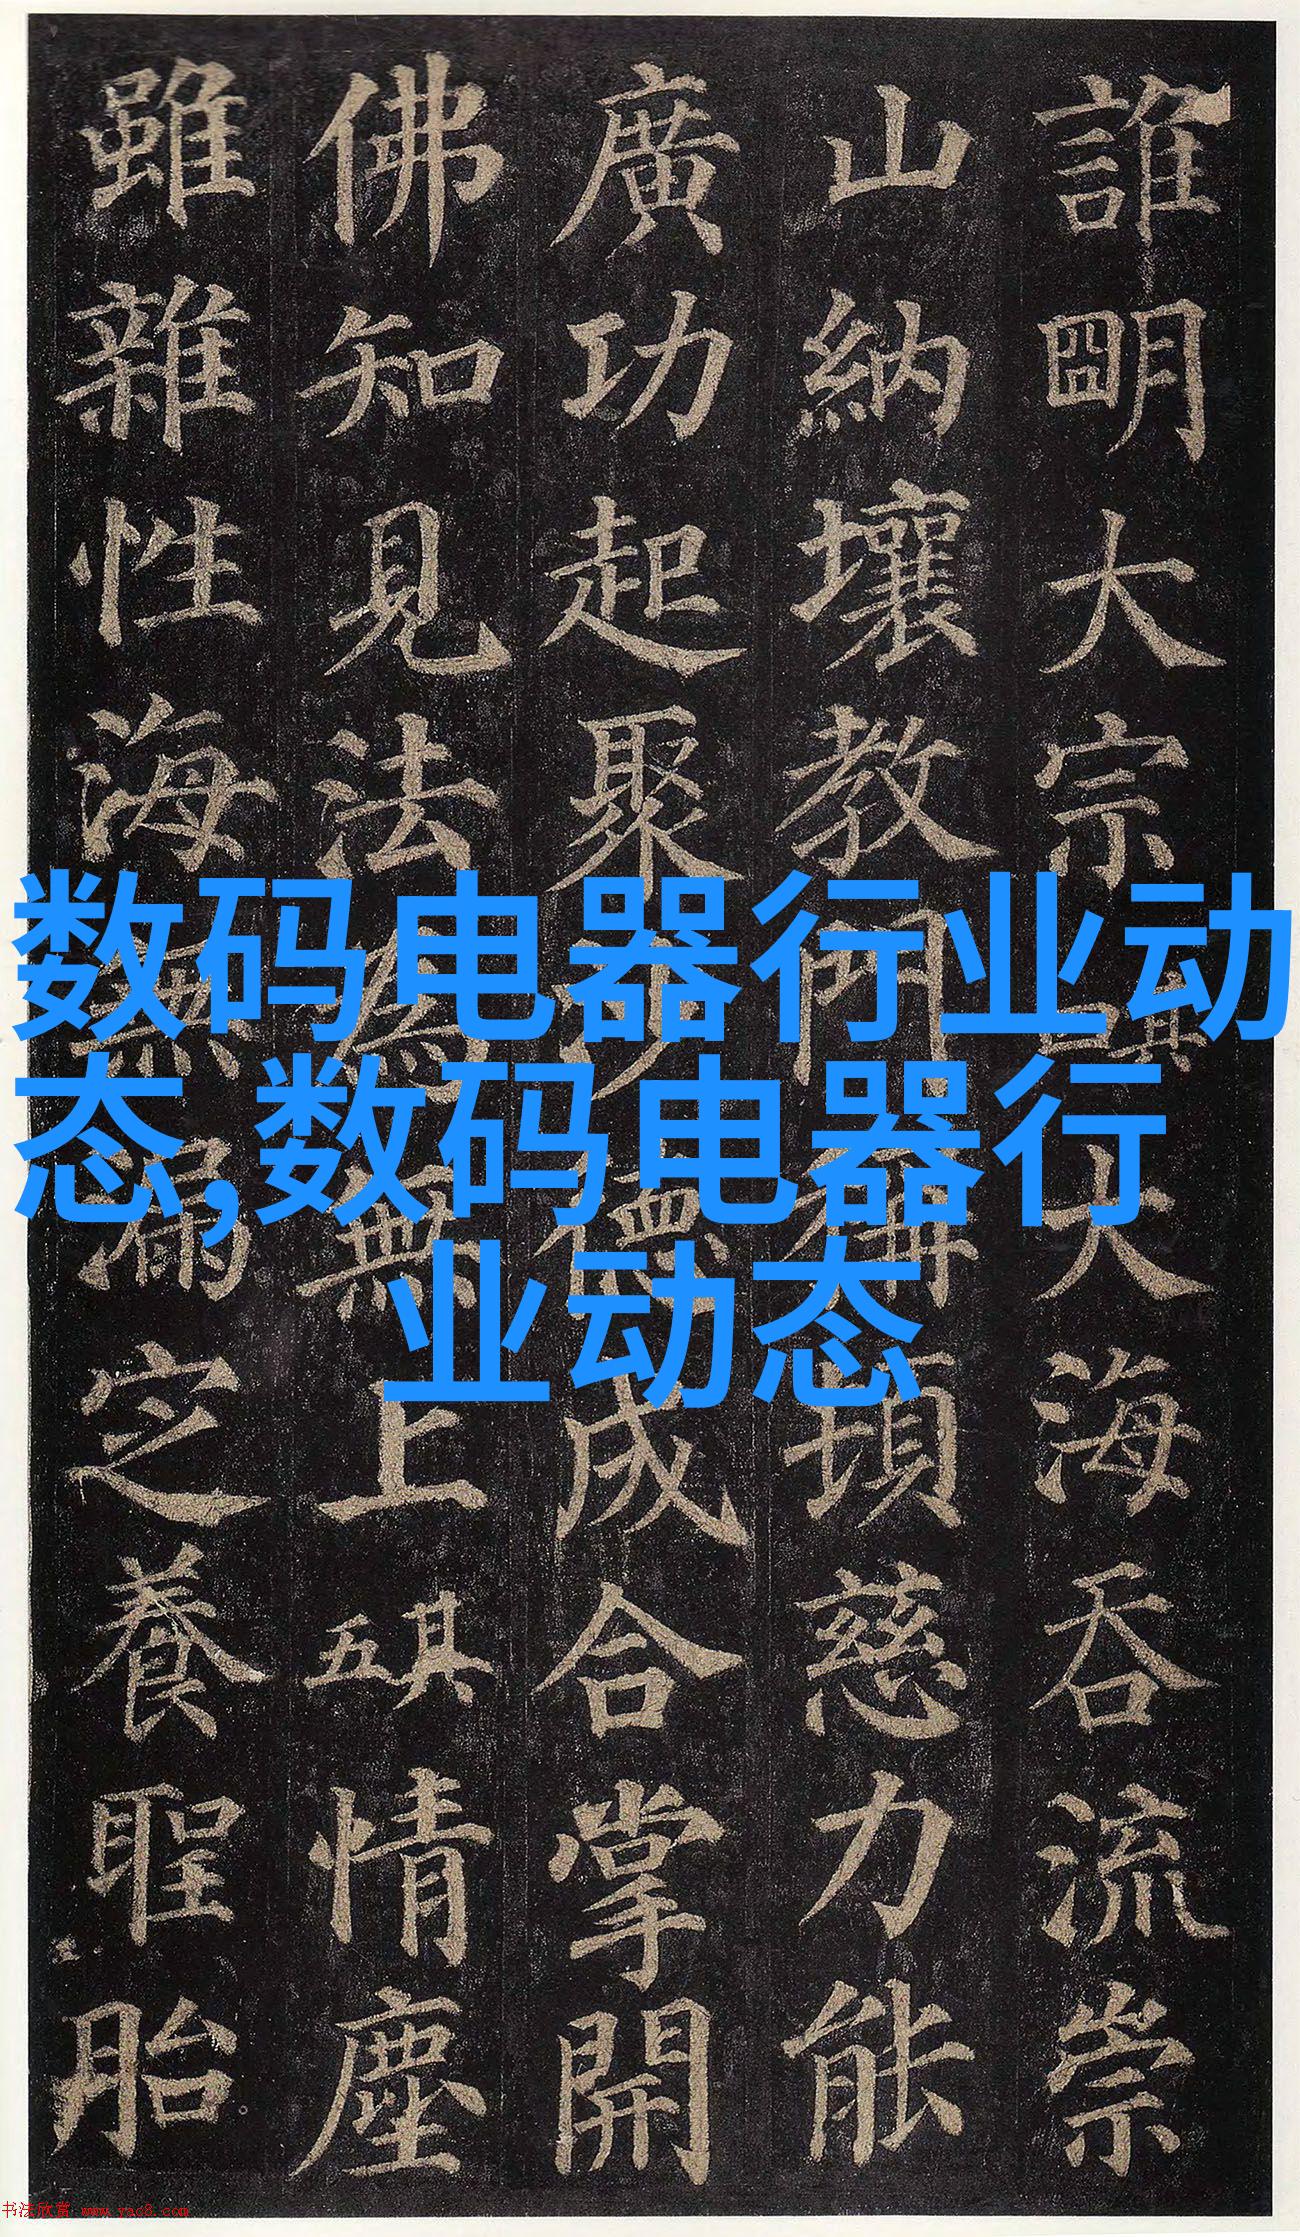 誰明大宗其四大海吞流崇
山納壤教門稱頓慈力能
廣功起聚沙德成合掌開
佛知見法為無上其五情塵
雖雜性海無漏㝎養聖胎
数码电器行业动
态,数码电器行
业动态
书法欣赏 www.yac8.com